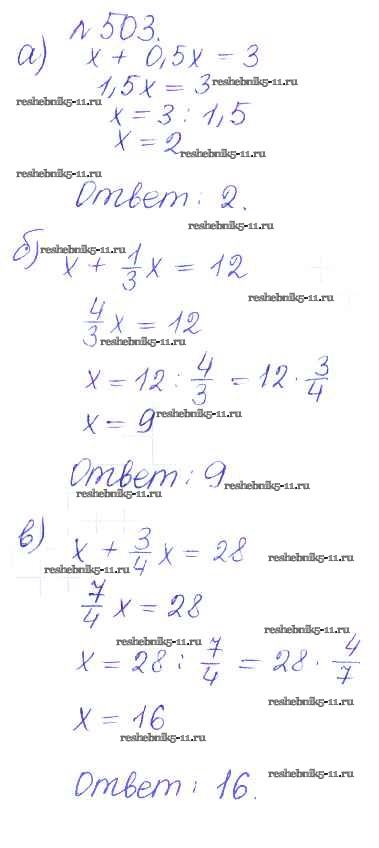 № 503.
а) x + 0,5x = 3
1,5x = 3 reshebniks-11.ru
reshebniks-11.ru
x = 3 : 1,5
x = 2 reshebniks-11.ru
reshebniks-11.ru
Ответ: 2.
reshebniks-11.ru
б) reshebniks-11.ru
x + 1/3 x = 12
reshebniks-11.ru
4/3 x = 12
reshebniks-11.ru
x = 12 : 4/3 = 12 · 3/4
x = 9 reshebniks-11.ru
Ответ: 9 reshebniks-11.ru
reshebniks-11.ru
в) x + 3/4 x = 28 reshebniks-11.ru
reshebniks-11.ru
7/4 x = 28
reshebniks-11.ru
reshebniks-11.ru
x = 28 : 7/4 = 28 · 4/7
reshebniks-11.ru
x = 16
reshebniks-11.ru
Ответ: 16. reshebniks-11.ru